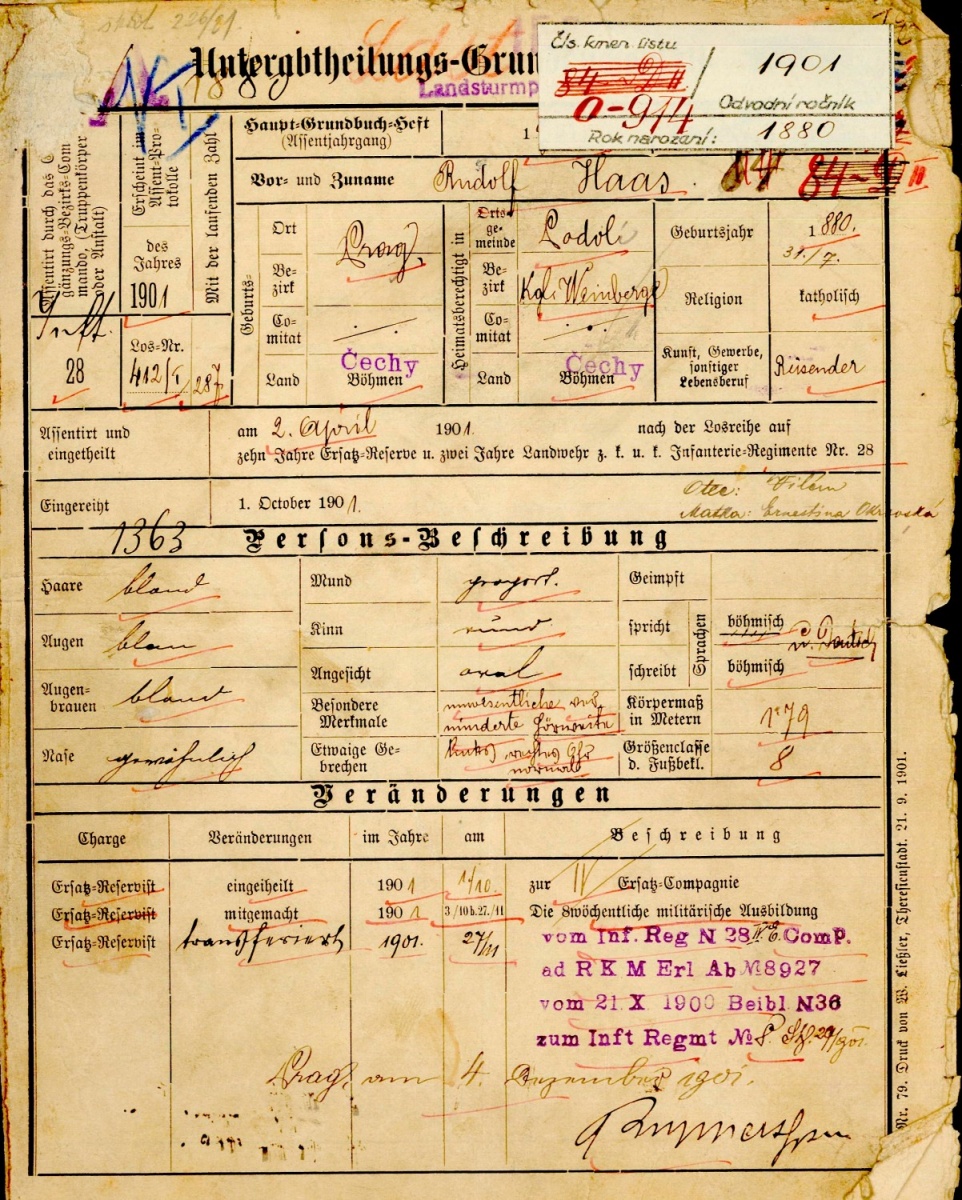 226/21.
Unterabtheilungs-Grun
1889
Landsturmp
Čís. kmen. listu
84-D II
0-974
1901
Odvodní ročník
Rok narození: 1880
Assentirt durch das E
gänzungs-Bezirks-Com
mando, (Truppenkörper
oder Anstalt)
Inft.
28
Erscheint im
Assent-Pro-
tokolle
des
Jahres
1901
Los-Nr.
412/I
Mit der laufenden Zahl
287
Haupt-Grundbuch-Heft
(Assentjahrgang)
1
Vor- und Zuname Rudolf Haas.
Geburts-
Ort Prag,
Be-
zirk
Co-
mitat
Land Čechy
Böhmen
Heimatsberechtigt in
Orts-
ge-
meinde Podolí
Be-
zirk Kgl. Weinberge
Co-
mitat
Land Čechy
Böhmen
Geburtsjahr 1880.
31./7.
Religion katholisch
Kunst, Gewerbe,
sonstiger
Lebensberuf Reisender
Assentirt und
eingetheilt
am 2. April 1901. nach der Losreihe auf
zehn Jahre Ersatz-Reserve u. zwei Jahre Landwehr z. k. u. k. Infanterie-Regimente Nr. 28
Eingereiht 1. October 1901.
Otec: Vilém
Matka: Ernestina
1363 Persons-Beschreibung
Haare blond
Augen blau
Augen-
brauen blond
Nase gewöhnlich
Mund proport.
Kinn rund
Angesicht oval
Besondere
Merkmale
Etwaige Ge-
brechen
unwesentliche ver-
minderte Hörweite
links, rechtes Ohr
normal
Geimpft
spricht
schreibt
Sprachen
böhmisch u. Deutsch
böhmisch
Körpermaß
in Metern 1·79
Größenclasse
d. Fußbekl. 8
Veränderungen
Charge Veränderungen im Jahre am Beschreibung
Ersatz-Reservist eingetheilt 1901 1/10. zur IV Ersatz-Compagnie
Ersatz-Reservist mitgemacht 1901 3/10 b. 27./11 Die 8wöchentliche militärische Ausbildung
Ersatz-Reservist transferiert 1901. 27/11 vom Inf. Reg N 28 IV. E. Comp.
ad R K M Erl Ab № 8927
vom 21 X 1900 Beibl. N 36
zum Inft Regmt № 8.
Prag, am 4. Dezember 1901.
Nr. 79. Druck von W. Ließler, Theresienstadt. 21. 9. 1901.